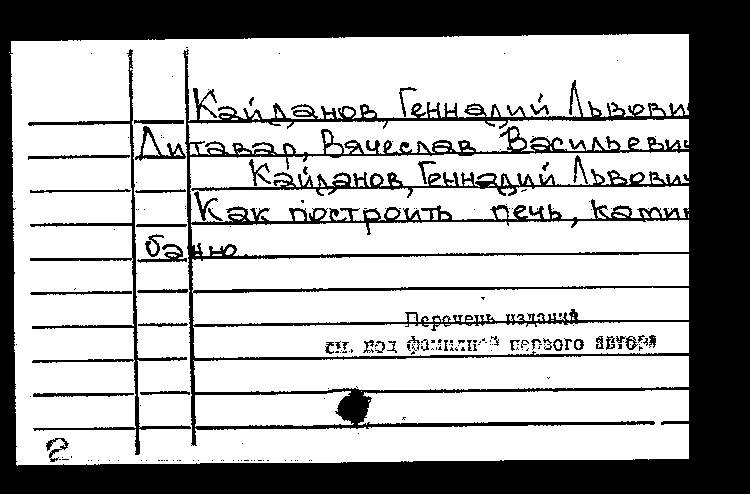 Кайданов, Геннадий Львови
Литавар, Вячеслав Васильеви
Кайданов, Геннадий Львови
Как построить печь, ками
баню.
Перечень изданий
см. под фамилией первого автора
2